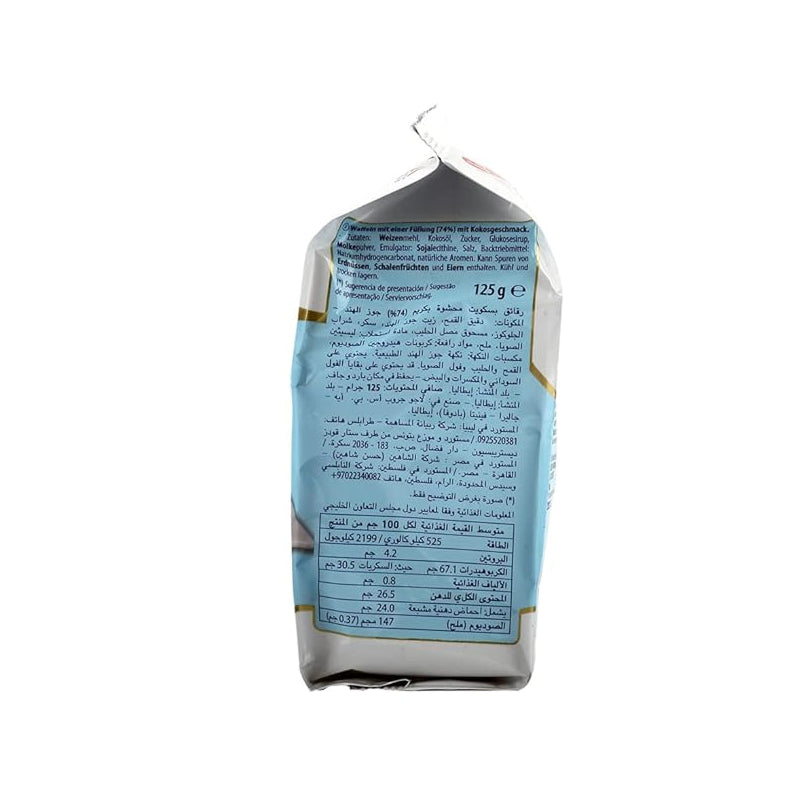 Waffeln mit einer Füllung (74%) mit Kokosgeschmack.
Zutaten: Weizenmehl, Kokosöl, Zucker, Glukosesirup,
Molkepulver, Emulgator: Sojalecithine, Salz, Backtriebmittel:
Natriumhydrogencarbonat, natürliche Aromen. Kann Spuren von
Erdnüssen, Schalenfrüchten und Eiern enthalten. Kühl und
trocken lagern.
(*) Sugerencia de presentación / Sugestão
de apresentação / Serviervorschlag.
125 g ℮
رقائق بسكويت محشوة بكريم (74%) جوز الهند –
المكونات: دقيق القمح، زيت جوز الهند، سكر، شراب
الجلوكوز، مسحوق مصل الحليب، مادة استحلاب: ليسيثين
الصويا، ملح، مواد رافعة: كربونات هيدروجين الصوديوم،
مكسبات النكهة: نكهة جوز الهند الطبيعية. يحتوي على
القمح والحليب وفول الصويا. قد يحتوي على بقايا الفول
السوداني والمكسرات والبيض. – يحفظ في مكان بارد وجاف.
– بلد المنشأ: إيطاليا. – صافي المحتويات: 125 جرام – بلد
المنشأ: إيطاليا. – صنع في: لاجو جروب أس. بي. أيه –
جاليرا – فينيتا (بادوفا)، إيطاليا.
المستورد في ليبيا: شركة ريبانة المساهمة – طرابلس هاتف:
0925520381/ مستورد و موزع بتونس من طرف ستار قودز
ديستريبسيون – دار فضال. ص.ب. 183 - 2036 سكرة. /
المستورد في مصر : شركة الشاهين (حسن شاهين) –
القاهرة – مصر. / المستورد في فلسطين: شركة النابلسي
وسيدس المحدودة. الرام، فلسطين، هاتف 97022340082+
(*) صورة بغرض التوضيح فقط.
المعلومات الغذائية وفقا لمعايير دول مجلس التعاون الخليجي
متوسط القيمة الغذائية لكل 100 جم من المنتج
الطاقة 525 كيلوكالوري/ 2199 كيلوجول
البروتين 4.2 جم
الكربوهيدرات 67.1 جم حيث: السكريات 30.5 جم
الألياف الغذائية 0.8 جم
المحتوى الكلي للدهن 26.5 جم
يشمل: أحماض دهنية مشبعة 24.0 جم
الصوديوم (ملح) 147 مجم (0.37 جم)